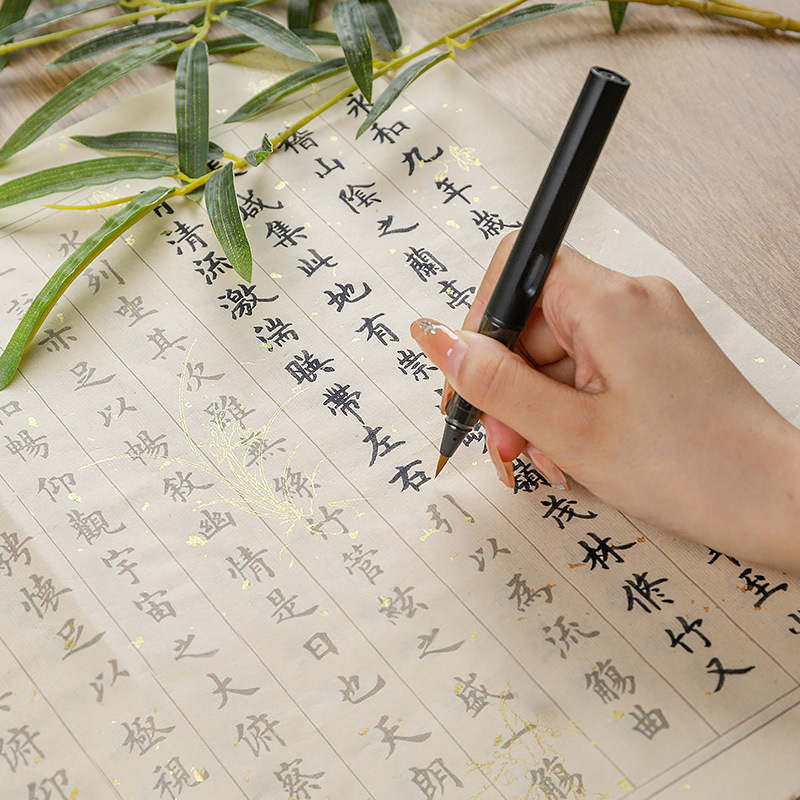 永和九年歲
稽山陰之蘭亭至
咸集此地有崇嶺茂林修竹又
清流激湍暎帶左右引以為流觴曲
水列坐其次雖無絲竹管絃之盛一觴
亦足以暢敘幽情是日也天朗
暢仰觀宇宙之大俯察
騁懷足以極視
俯仰